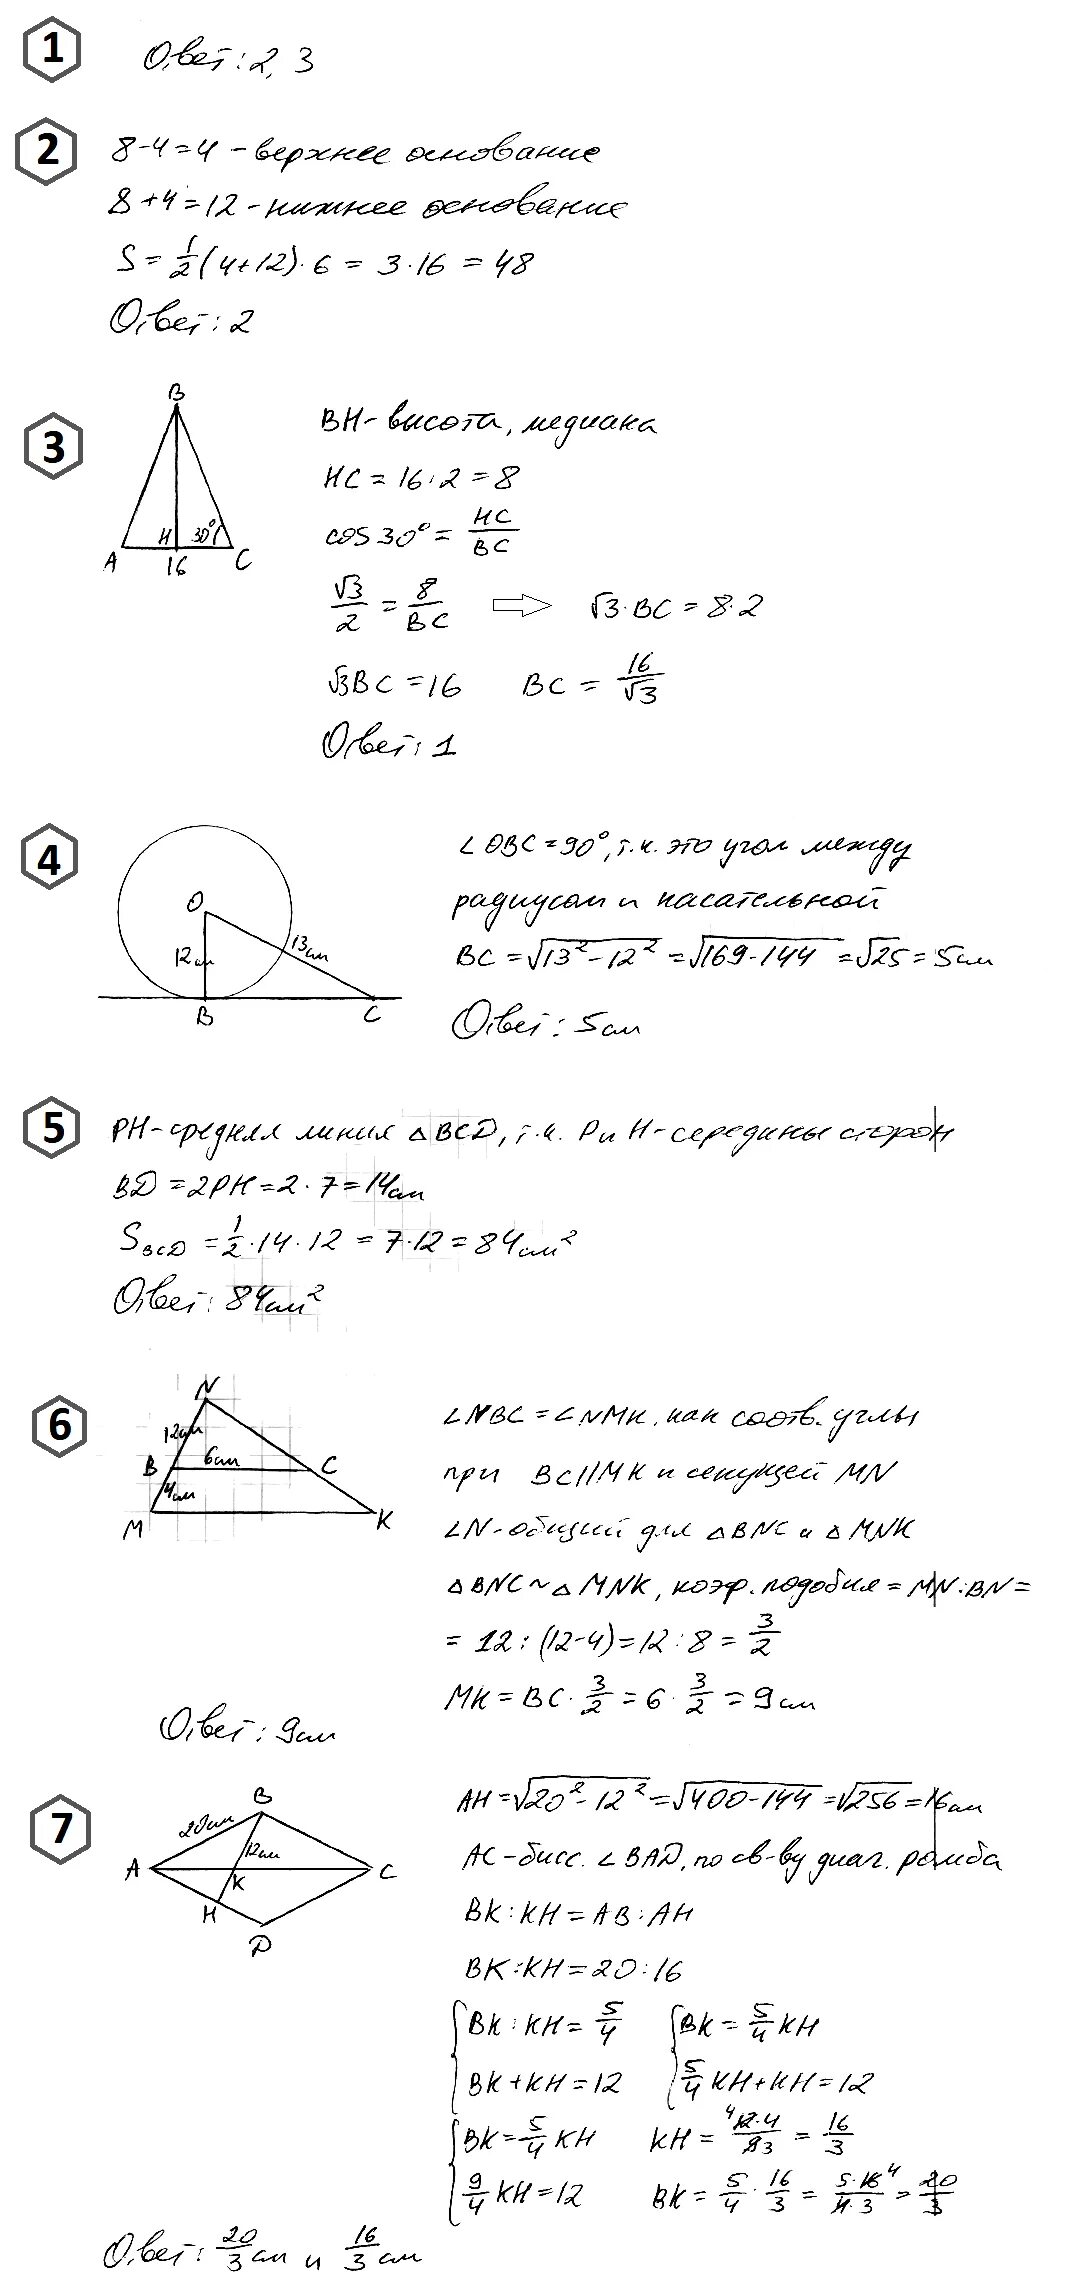 1
Ответ: 2, 3
2
8-4=4 - верхнее основание
8+4=12 - нижнее основание
S = 1/2 (4+12)·6 = 3·16 = 48
Ответ: 2
3
B
A
H
30°
C
16
BH - высота, медиана
HC = 16:2 = 8
cos 30° = HC/BC
√3/2 = 8/BC ⇒ √3·BC = 8·2
√3BC = 16 BC = 16/√3
Ответ: 1
4
O
12см
13см
B
C
∠OBC = 90°, т.к. это угол между
радиусом и касательной
BC = √(13²-12²) = √(169-144) = √25 = 5см
Ответ: 5см
5
PH - средняя линия △BCD, т.к. P и H - середины сторон
BD = 2PH = 2·7 = 14см
S_BCD = 1/2·14·12 = 7·12 = 84см²
Ответ: 84см²
6
N
12см
B
6см
C
4см
M
K
∠NBC = ∠NMK, как соотв. углы
при BC||MK и секущей MN
∠N - общий для △BNC и △MNK
△BNC ~ △MNK, коэф. подобия = MN:BN =
= 12:(12-4) = 12:8 = 3/2
MK = BC·3/2 = 6·3/2 = 9см
Ответ: 9см
7
B
20см
12см
A
K
C
H
D
AH = √(20²-12²) = √(400-144) = √256 = 16см
AC - бисс. ∠BAD, по св-ву диаг. ромба
BK:KH = AB:AH
BK:KH = 20:16
{BK:KH = 5/4 {BK = 5/4 KH
BK+KH = 12 5/4 KH+KH = 12
{BK = 5/4 KH KH = 4 12·4/9 3 = 16/3
9/4 KH = 12 BK = 5/4·16/3 = 5·16 4/4·3 = 20/3
Ответ: 20/3 см и 16/3 см